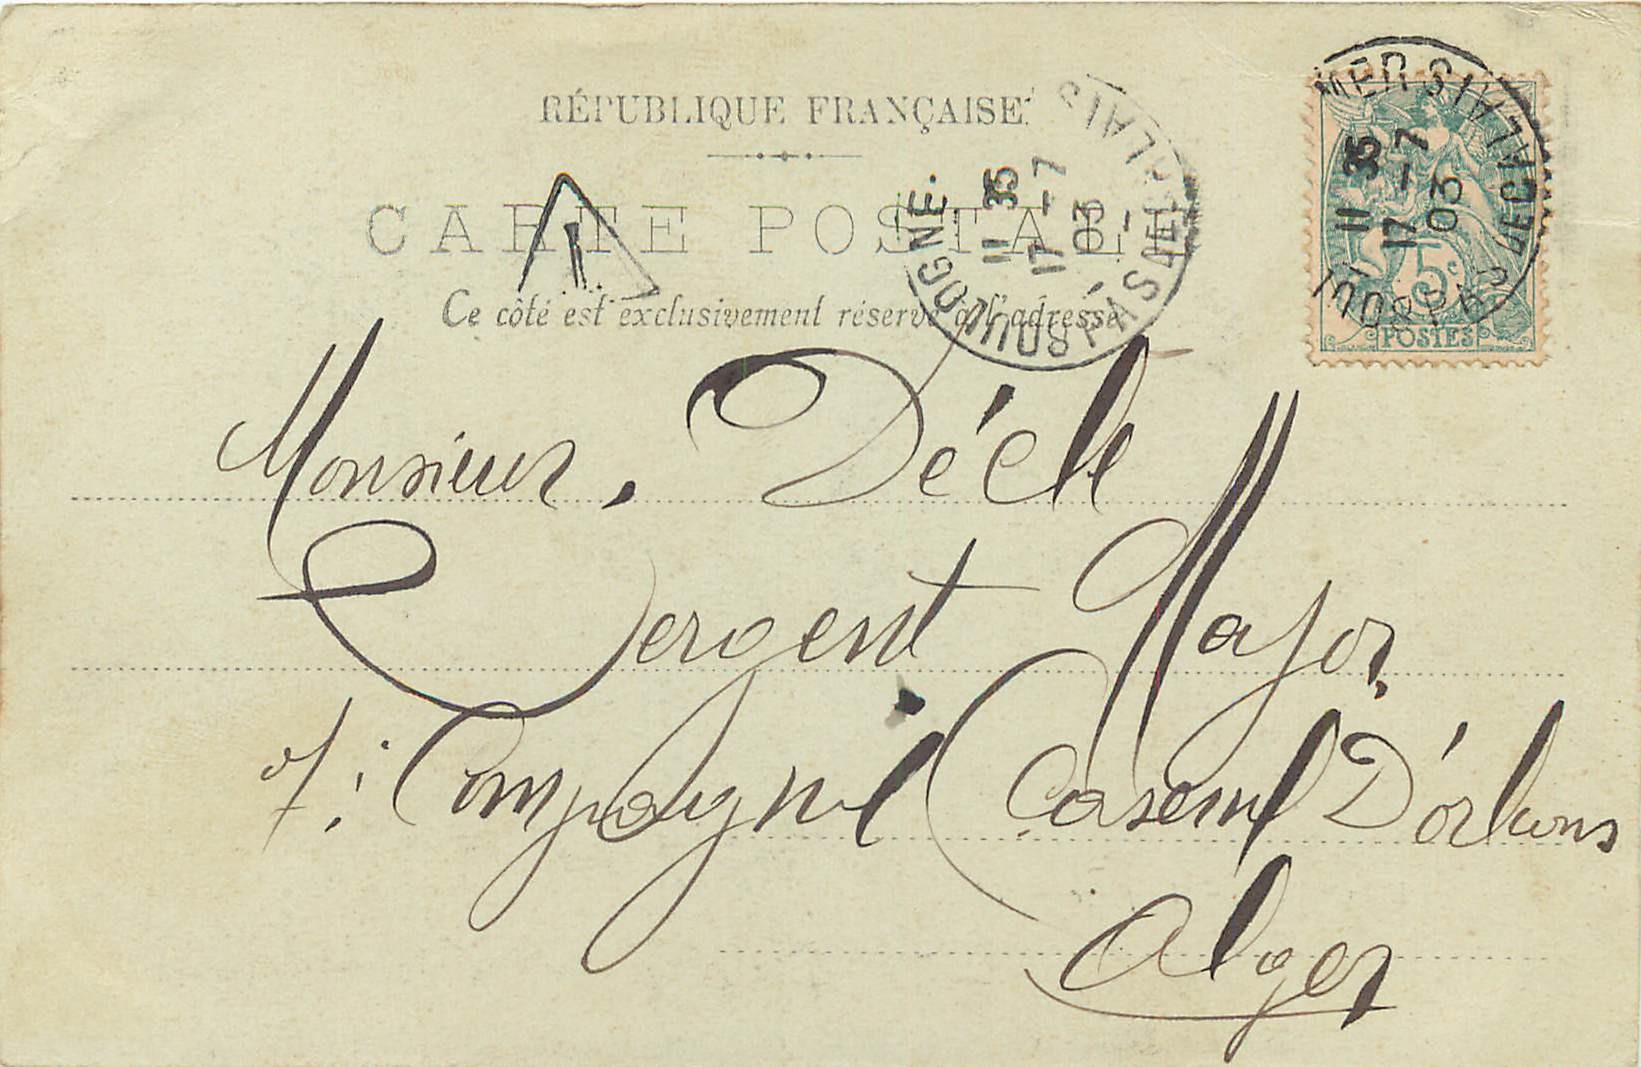 RÉPUBLIQUE FRANÇAISE
CARTE POSTALE
Ce côté est exclusivement réservé à l'adresse
BOULOGNE-S-MER PAS DE CALAIS
11 35
17 -7
03
BOULOGNE-S-MER PAS DE CALAIS
11 35
17 -7
03
5c
POSTES
Monsieur. Décle
Sergent Major
7: Compagnie Caserne D'orléans
Alger